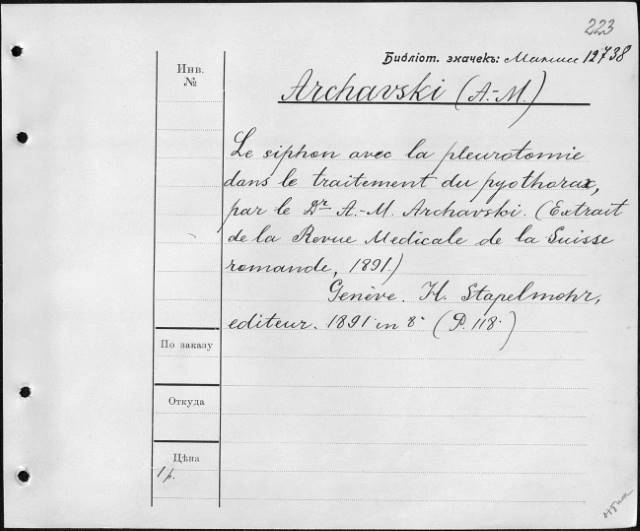 223
Библіот. значекъ: 12738
Инв.
№
Archavski (A.-M.)
Le siphon avec la pleurotomie
dans le traitement du pyothorax,
par le Dr A.-M. Archavski. (Extrait
de la Revue Medicale de la Suisse
romande, 1891.)
Genève. H. Stapelmohr,
editeur. 1891 in 8° (P. 118.)
По заказу
Откуда
Цѣна
1 р.